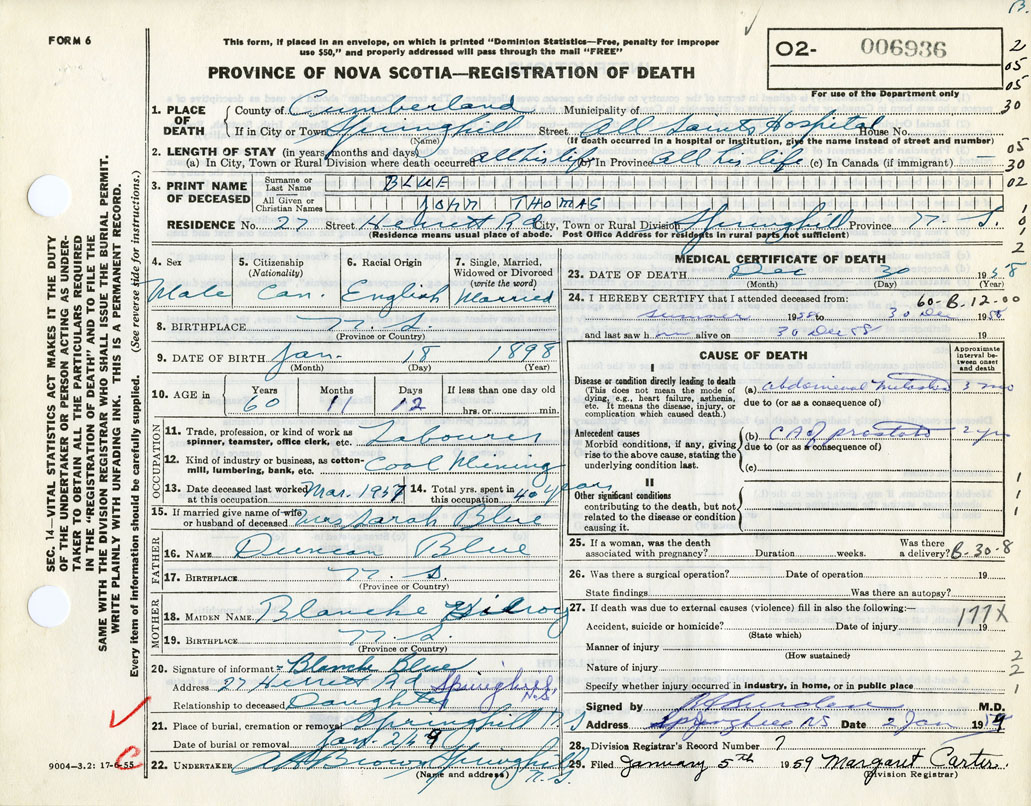 FORM 6
This form, if placed in an envelope, on which is printed "Dominion Statistics—Free, penalty for improper
use $50," and properly addressed will pass through the mail "FREE"
PROVINCE OF NOVA SCOTIA—REGISTRATION OF DEATH
02- 006936
For use of the Department only
2
05
05
30
1. PLACE OF DEATH
County of Cumberland Municipality of
If in City or Town Springhill Street All Saints Hospital House No.
(Name) (If death occurred in a hospital or institution, give the name instead of street and number)
2. LENGTH OF STAY (in years, months and days)
(a) In City, Town or Rural Division where death occurred all his life (b) In Province all his life (c) In Canada (if immigrant) —
05
30
02
3. PRINT NAME OF DECEASED
Surname or Last Name BLUE
All Given or Christian Names JOHN THOMAS
RESIDENCE No. 27 Street Herrett Rd City, Town or Rural Division Springhill Province N. S.
(Residence means usual place of abode. Post Office Address for residents in rural parts not sufficient)
4. Sex Male
5. Citizenship (Nationality) Can.
6. Racial Origin English
7. Single, Married, Widowed or Divorced (write the word) Married
8. BIRTHPLACE N. S.
(Province or Country)
9. DATE OF BIRTH Jan. 18 1898
(Month) (Day) (Year)
10. AGE in Years 60 Months 11 Days 12 If less than one day old hrs. or min.
OCCUPATION
11. Trade, profession, or kind of work as spinner, teamster, office clerk, etc. Labourer
12. Kind of industry or business, as cotton-mill, lumbering, bank, etc. Coal Mining
13. Date deceased last worked at this occupation Mar. 1957 14. Total yrs. spent in this occupation 40 years
15. If married give name of wife or husband of deceased Mrs Sarah Blue
FATHER
16. NAME Duncan Blue
17. BIRTHPLACE N. S.
(Province or Country)
MOTHER
18. MAIDEN NAME Blanche Gilroy
19. BIRTHPLACE N. S.
(Province or Country)
20. Signature of informant Blanche Blue
Address 27 Herrett Rd Springhill, N.S.
Relationship to deceased Daughter
21. Place of burial, cremation or removal Springhill N S
Date of burial or removal Jan. 2/59
22. UNDERTAKER A H Brown Springhill N. S.
(Name and address)
9004—3.2: 17-6-55
MEDICAL CERTIFICATE OF DEATH
23. DATE OF DEATH Dec 30 1958
(Month) (Day) (Year)
24. I HEREBY CERTIFY that I attended deceased from: 60-B-12-00
summer 1958 to 30 Dec 1958
and last saw him alive on 30 Dec 58 19
CAUSE OF DEATH
Approximate interval between onset and death
I
Disease or condition directly leading to death
(This does not mean the mode of dying, e.g., heart failure, asthenia, etc. It means the disease, injury, or complication which caused death.)
(a) abdominal metastases 3 mo
due to (or as a consequence of)
Antecedent causes
Morbid conditions, if any, giving rise to the above cause, stating the underlying condition last.
(b) ca of prostate 2 yrs
due to (or as a consequence of)
(c)
II
Other significant conditions
contributing to the death, but not related to the disease or condition causing it.
25. If a woman, was the death associated with pregnancy? Duration weeks. Was there a delivery? B-30-8
26. Was there a surgical operation? Date of operation 19
State findings Was there an autopsy?
27. If death was due to external causes (violence) fill in also the following:—
177X
Accident, suicide or homicide? Date of injury 19
(State which)
Manner of injury
(How sustained)
Nature of injury
Specify whether injury occurred in industry, in home, or in public place
Signed by M.D.
Address Springhill NS Date 2 Jan 1959
28. Division Registrar's Record Number 7
29. Filed January 5th 1959 Margaret Carter
(Division Registrar)
SEC. 14—VITAL STATISTICS ACT MAKES IT THE DUTY
OF THE UNDERTAKER OR PERSON ACTING AS UNDER-
TAKER TO OBTAIN ALL THE PARTICULARS REQUIRED
IN THE "REGISTRATION OF DEATH" AND TO FILE THE
SAME WITH THE DIVISION REGISTRAR WHO SHALL ISSUE THE BURIAL PERMIT.
WRITE PLAINLY WITH UNFADING INK. THIS IS A PERMANENT RECORD.
Every item of information should be carefully supplied. (See reverse side for instructions.)